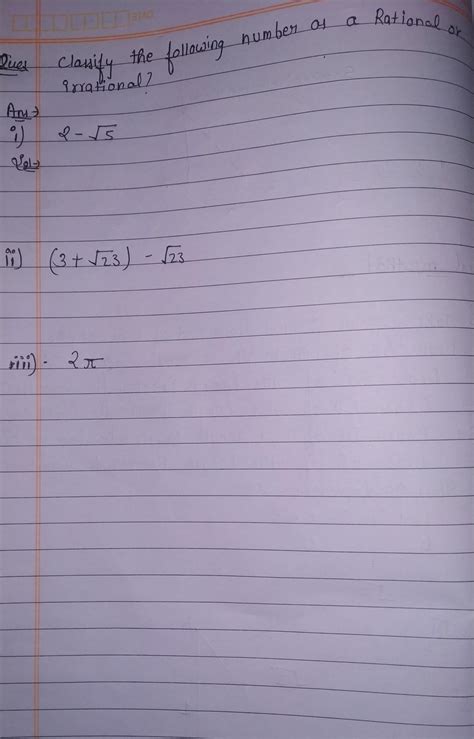 Ques Classify the following number as a Rational or
irrational?
Ans→
i) 2-√5
Sol→
ii) (3+√23) - √23
iii) - 2π